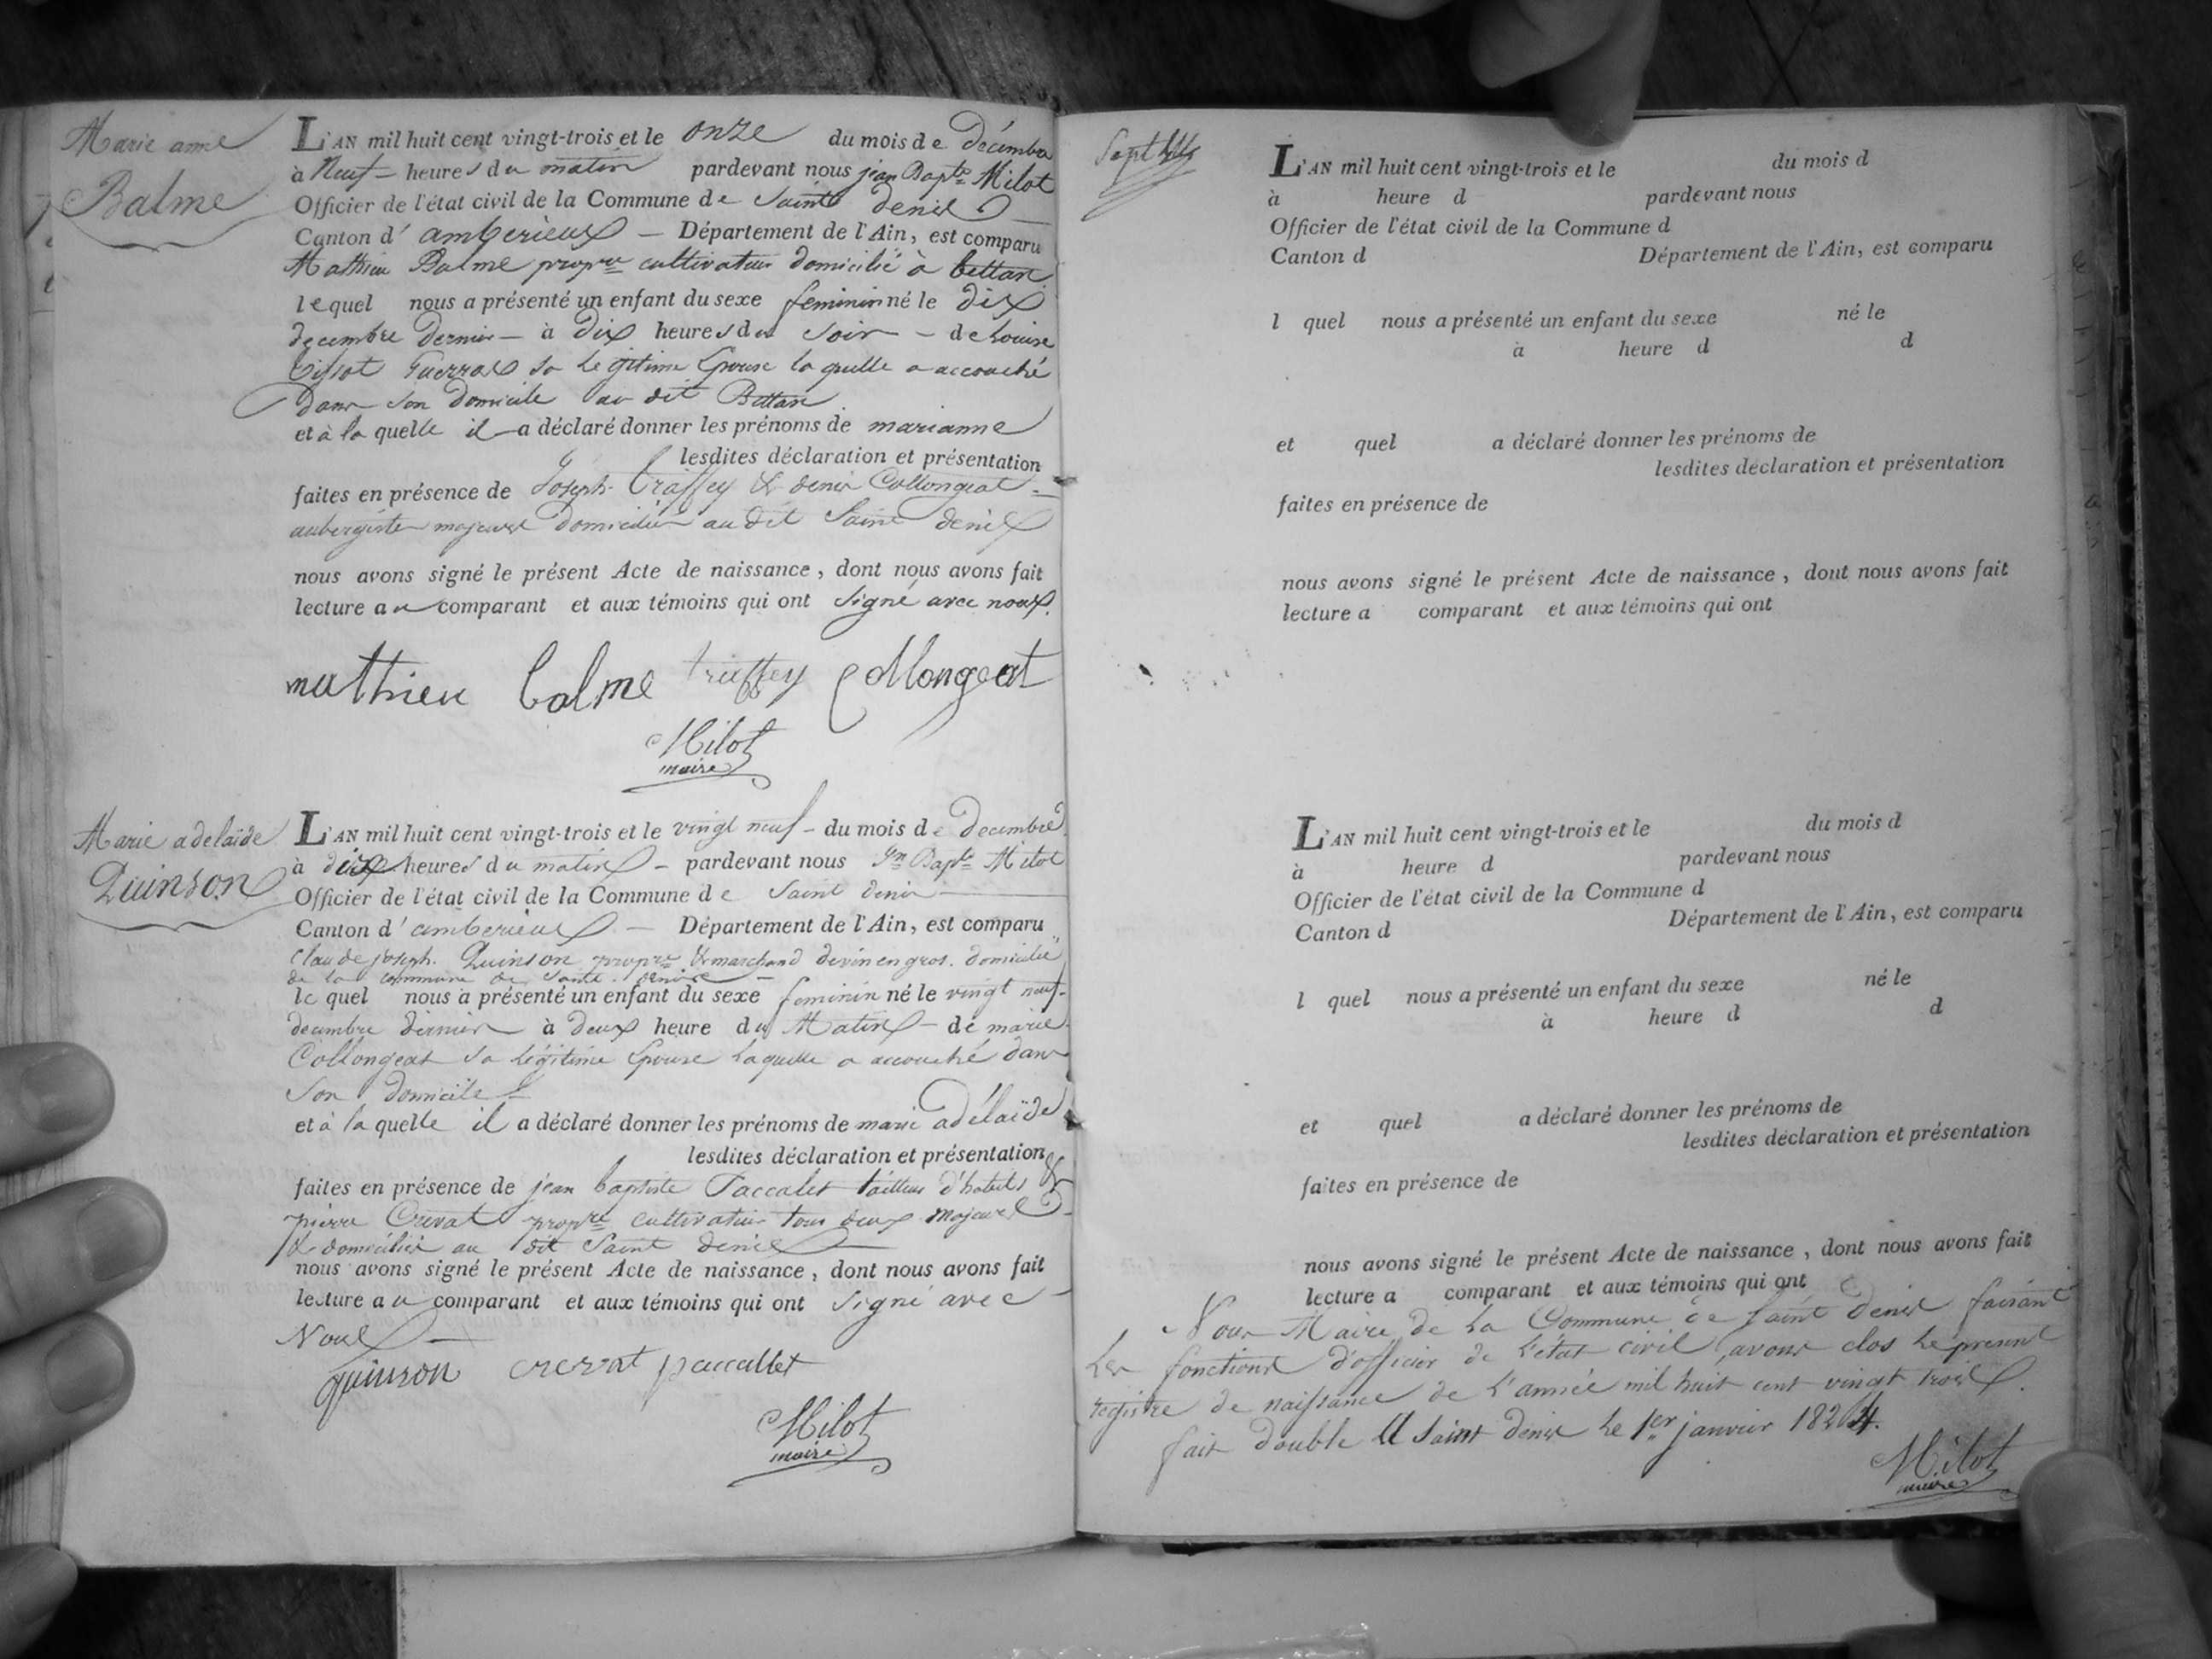 Marie anne
Balme
L'AN mil huit cent vingt-trois et le onze du mois de décembre
à Neuf heures du matin pardevant nous jean Bapte Milot
Officier de l'état civil de la Commune de Saint denis
Canton d'amberieux Département de l'Ain, est comparu
Mathieu Balme propre cultivateur domicilié à bettan
lequel nous a présenté un enfant du sexe feminin né le dix
decembre dernier à dix heures du soir de Louise
tissot sa legitime Epouse la quelle a accouché
dans son domicile au dit Bettan
et à la quelle il a déclaré donner les prénoms de marianne
lesdites déclaration et présentation
faites en présence de Joseph traffey & denis Collongeat
aubergiste majeurs domiciliés au dit Saint denis
nous avons signé le présent Acte de naissance, dont nous avons fait
lecture au comparant et aux témoins qui ont signé avec nous.
mathieu balme traffey Collongeat
Milot
maire
Marie adelaïde
Quinson
L'AN mil huit cent vingt-trois et le vingt neuf du mois de decembre
à dix heures du matin pardevant nous Jn Bapte Milot
Officier de l'état civil de la Commune de Saint denis
Canton d'amberieux Département de l'Ain, est comparu
Claude joseph Quinson propre & marchand de vin en gros domicilié
de la commune de Saint denis
le quel nous a présenté un enfant du sexe feminin né le vingt neuf
decembre dernier à deux heure du Matin de marie
Collongeat sa légitime Epouse laquelle a accouché dans
son domicile
et à la quelle il a déclaré donner les prénoms de marie adélaïde
lesdites déclaration et présentation
faites en présence de jean baptiste Paccalet tailleur d'habits &
pierre Crevat propre cultivateur tous deux majeurs
& domiciliés au dit Saint denis
nous avons signé le présent Acte de naissance, dont nous avons fait
lecture au comparant et aux témoins qui ont signé avec
Nous
quinson crevat paccallet
Milot
maire
L'AN mil huit cent vingt-trois et le du mois d
à heure d pardevant nous
Officier de l'état civil de la Commune d
Canton d Département de l'Ain, est comparu
l quel nous a présenté un enfant du sexe né le
à heure d d
et quel a déclaré donner les prénoms de
lesdites déclaration et présentation
faites en présence de
nous avons signé le présent Acte de naissance, dont nous avons fait
lecture a comparant et aux témoins qui ont
L'AN mil huit cent vingt-trois et le du mois d
à heure d pardevant nous
Officier de l'état civil de la Commune d
Canton d Département de l'Ain, est comparu
l quel nous a présenté un enfant du sexe né le
à heure d d
et quel a déclaré donner les prénoms de
lesdites déclaration et présentation
faites en présence de
nous avons signé le présent Acte de naissance, dont nous avons fait
lecture a comparant et aux témoins qui ont
Nous Maire de la Commune de Saint denis faisant
les fonctions d'officier de l'état civil, avons clos le présent
registre de naissance de l'année mil huit cent vingt trois.
fait double a Saint denis le 1er janvier 1824.
Milot
maire